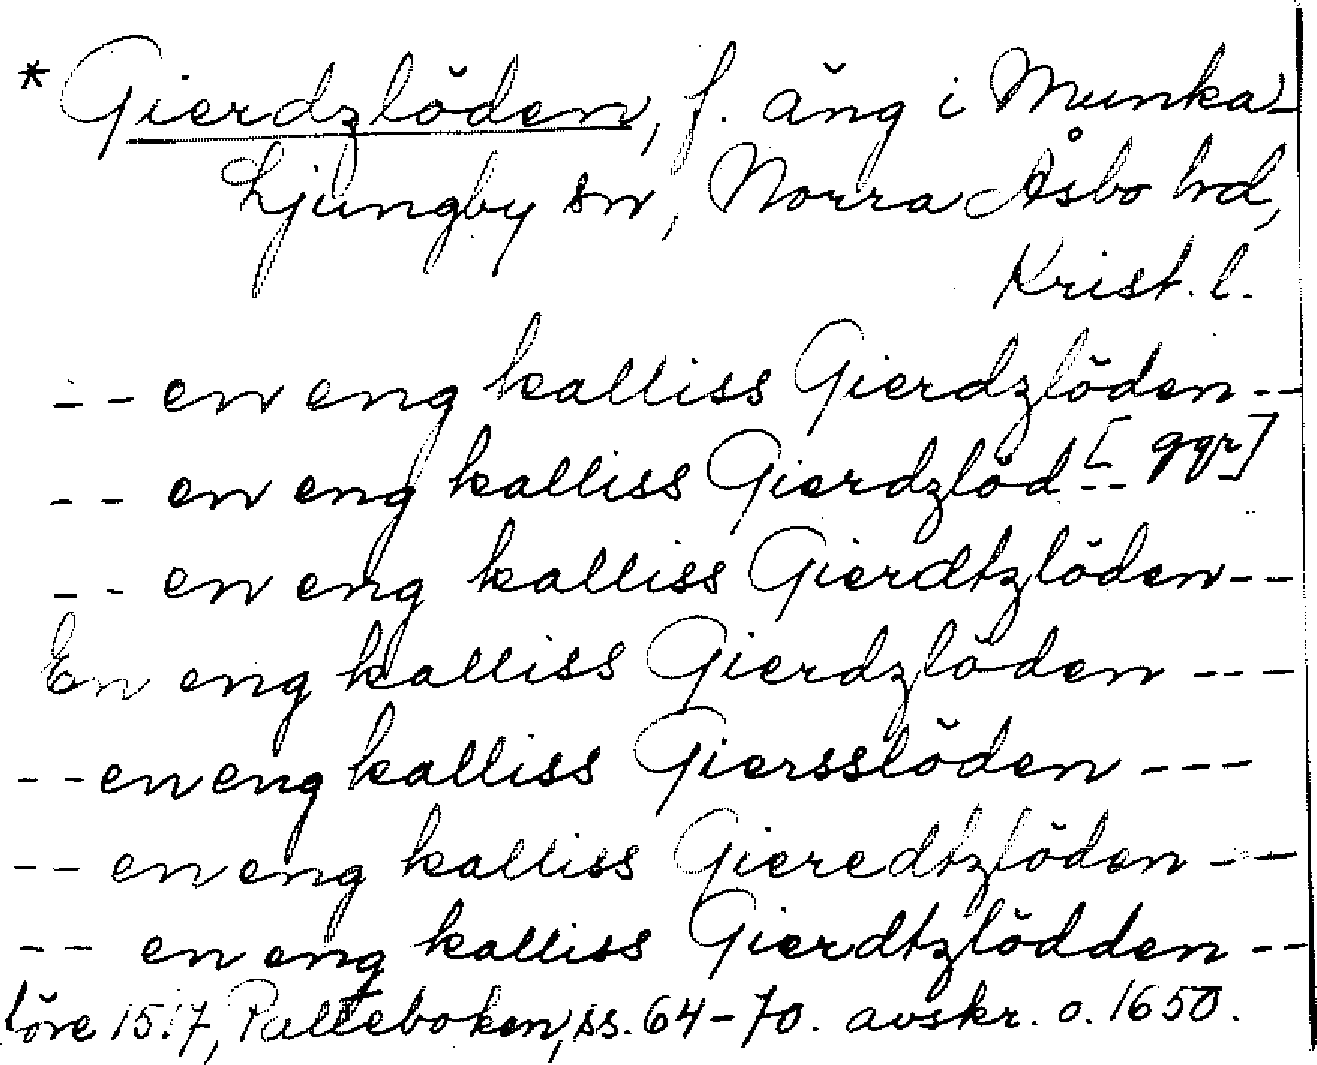 * Gierdzlöden, f. äng i Munka-
Ljungby sn, Norra Åsbo hd,
Krist. l.
-- en eng kalliss Gierdzlöden --
-- en eng kalliss Gierdzlöd -- [ggr]
-- en eng kalliss Gierdtzlöden --
En eng kalliss Gierdzlöden ---
-- en eng kalliss Giersslöden ---
-- en eng kalliss Gieredtzlöden --
-- en eng kalliss Gierdtzlödden --
före 1517, Palteboken, ss. 64-70. avskr. o. 1650.